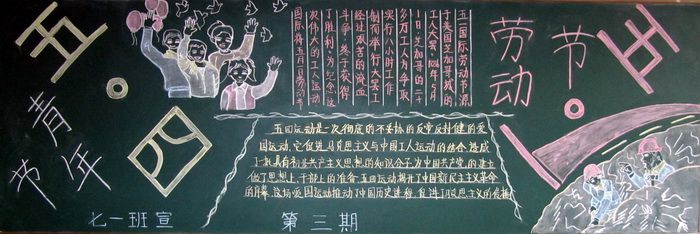 五·四
青年节
五一国际劳动节源
于美国芝加哥城的
工人大罢工。1886年5月
1日,芝加哥的二十
多万工人为争取
实行八小时工作
制而举行大罢工,
经过艰苦的流血
斗争,终于获得
了胜利。为纪念这
次伟大的工人运动
国际将五月一日劳动节
劳动节
五·一
五四运动是一次彻底的不妥协的反帝反封建的爱
国运动,它促进马克思主义与中国工人运动的结合,造成
了一批具有初步共产主义思想的知识分子,为中国共产党的建立
做了思想上、干部上的准备。五四运动揭开了中国新民主主义革命
的序幕,这场爱国运动推动了中国历史进程,促进了马思主义的发播
七一班宣
第三期